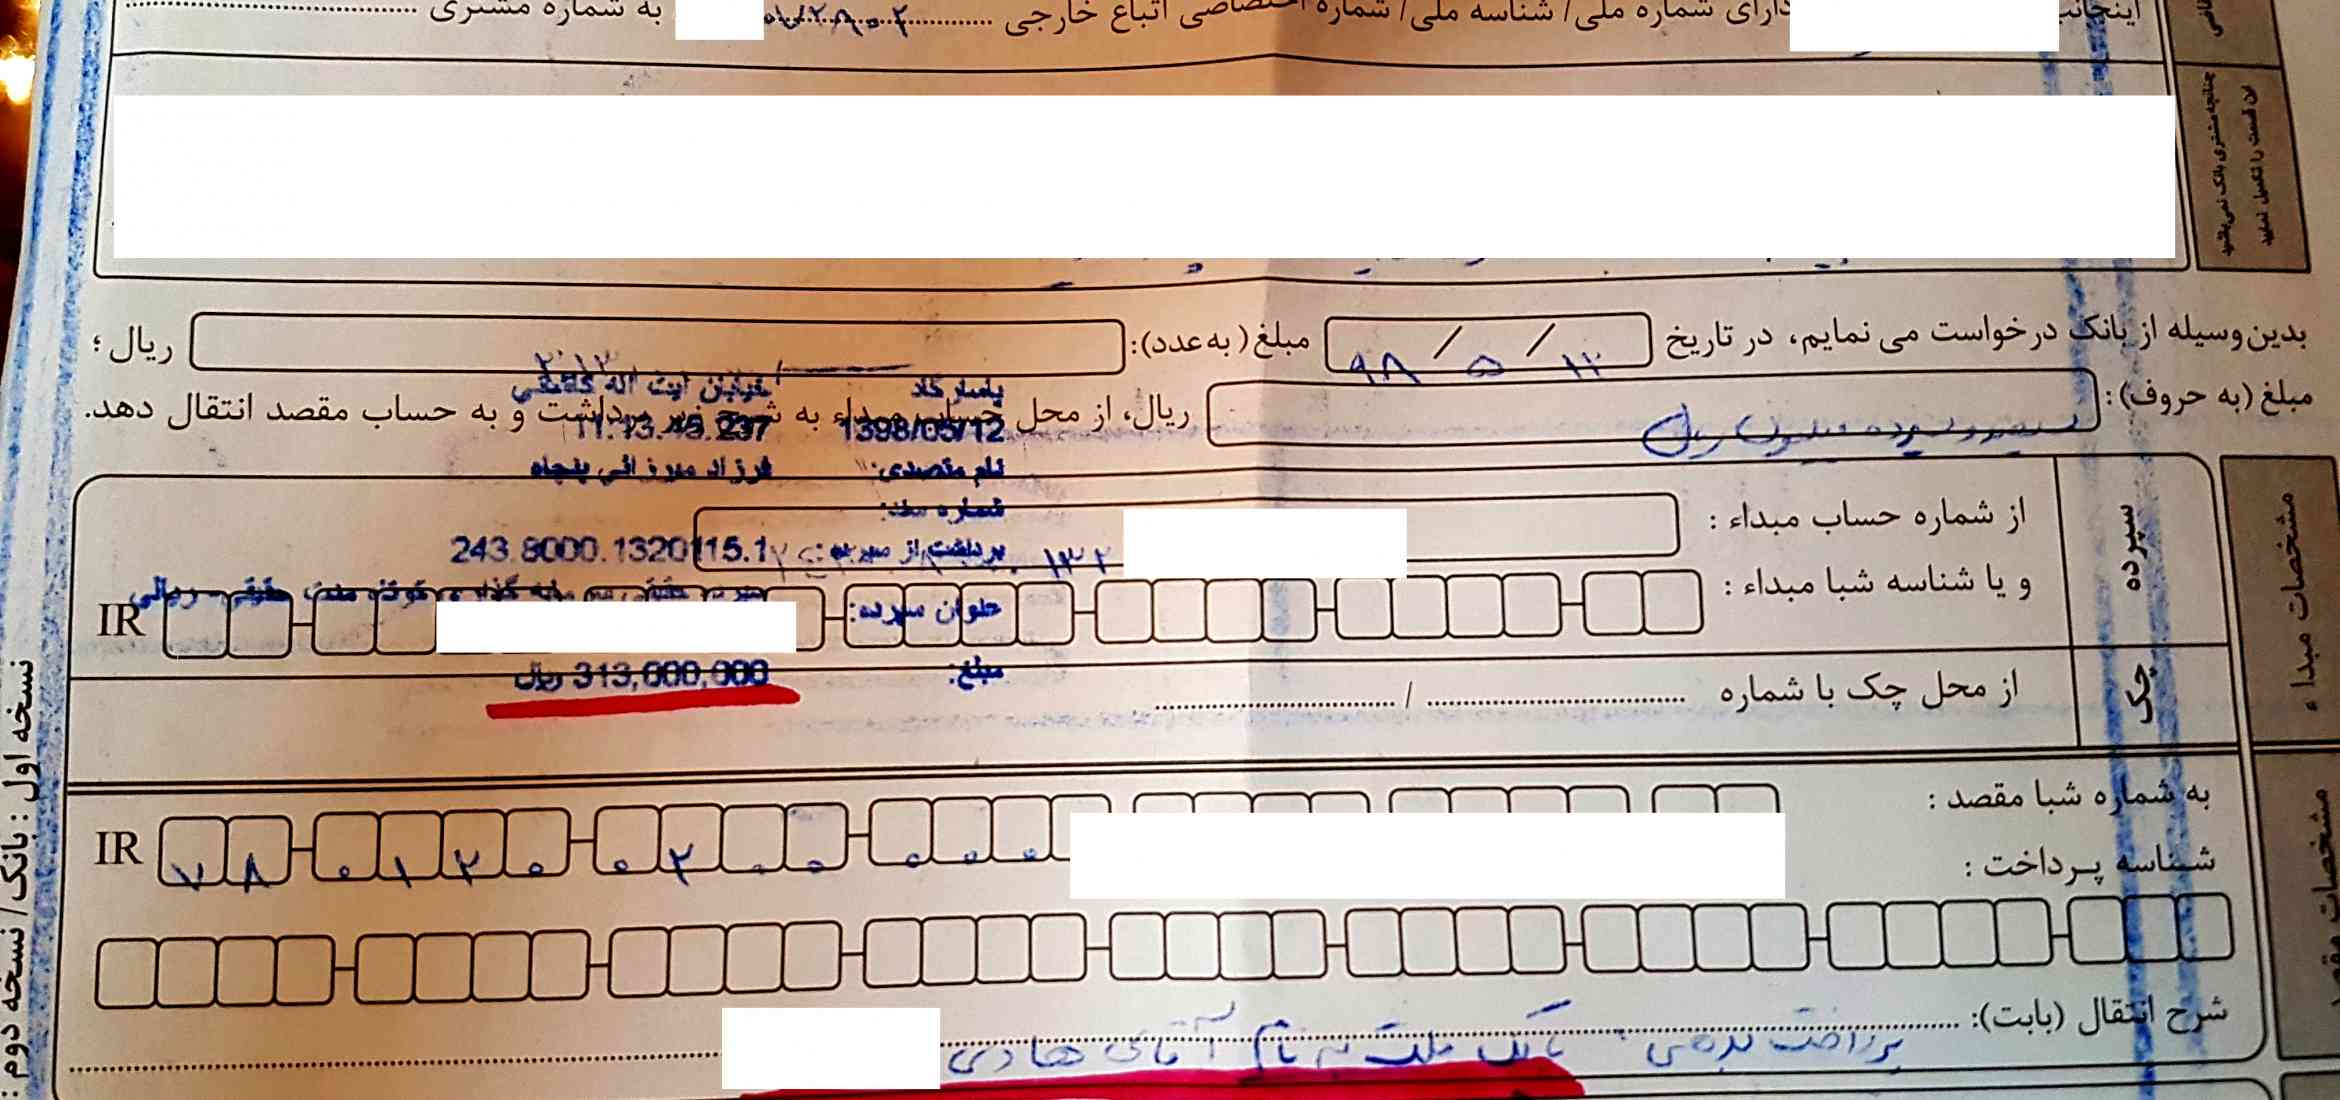 اینجانب دارای شماره ملی/ شناسه ملی/ شماره اختصاصی اتباع خارجی به شماره مشتری
چنانچه مشتری بانک نمی‌باشید
این قسمت را تکمیل نمایید
بدین‌وسیله از بانک درخواست می نمایم، در تاریخ ۱۲ / ۵ / ۹۸ مبلغ (به عدد): ریال ؛
مبلغ (به حروف): سیصد و سیزده میلیون ریال ریال، از محل حساب مبداء به شرح زیر برداشت و به حساب مقصد انتقال دهد.
پاسارگاد خیابان آیت اله کاشانی
1398/05/12 11:13:45.237
نام متصدی: فرزاد میرزائی پنجاه
مشخصات مبداء
سپرده
از شماره حساب مبداء : ۱۳۲
برداشت از سپرده: 243.8000.1320115.1
و یا شناسه شبا مبداء : IR
عنوان سپرده:
مبلغ: 313,000,000 ریال
چک
از محل چک با شماره /
مشخصات مقصد
به شماره شبا مقصد :
IR ۷۸ ۰۱۲۰ ۰۲۰۰ ۰۰۰
شناسه پرداخت :
شرح انتقال (بابت): پرداخت بدهی بانک ملت به نام آقای هادی
نسخه اول : بانک/ نسخه دوم :